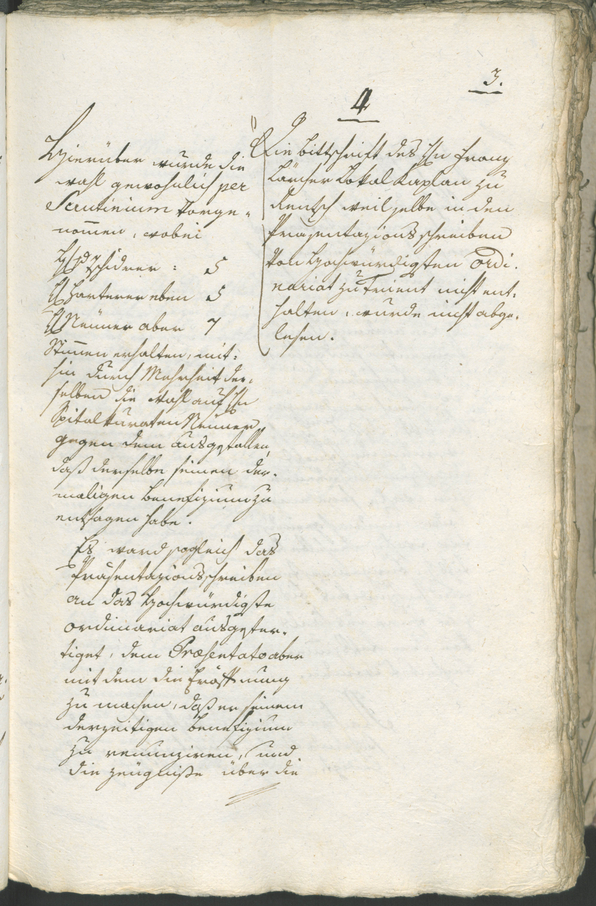 3.
4
Hierüber wurde die
wahl gewöhnlich per
Scrutinium vorge=
nommen, wobei
H. Tschiderer : 5
H. Harterer eben 5
H. Nenner aber 7
Stimmen erhalten, mit=
hin durch Mehrheit der=
selben die wahl auf H.
Spitalkuraten Nenner,
gegen dem ausgefallen,
daß derselbe seinem der=
maligen Benefizium zu
entsagen habe.
Es ward sogleich das
Präsentazionsschreiben
an das Hochwürdigste
ordinariat ausgefer=
tiget, dem Præsentato aber
mit dem die Eröffnung
zu machen, daß er seinem
derzeitigen Benefizium
zu renunziren, und
die zeugniße über die
Die bittschrift des Hn Franz
Lokal Kaplan zu
weil selbe in den
Präsentazionsschreiben
vom Hochwürdigsten Ordi=
nariat zu Trient nicht ent=
halten, wurde nicht abge=
lesen.